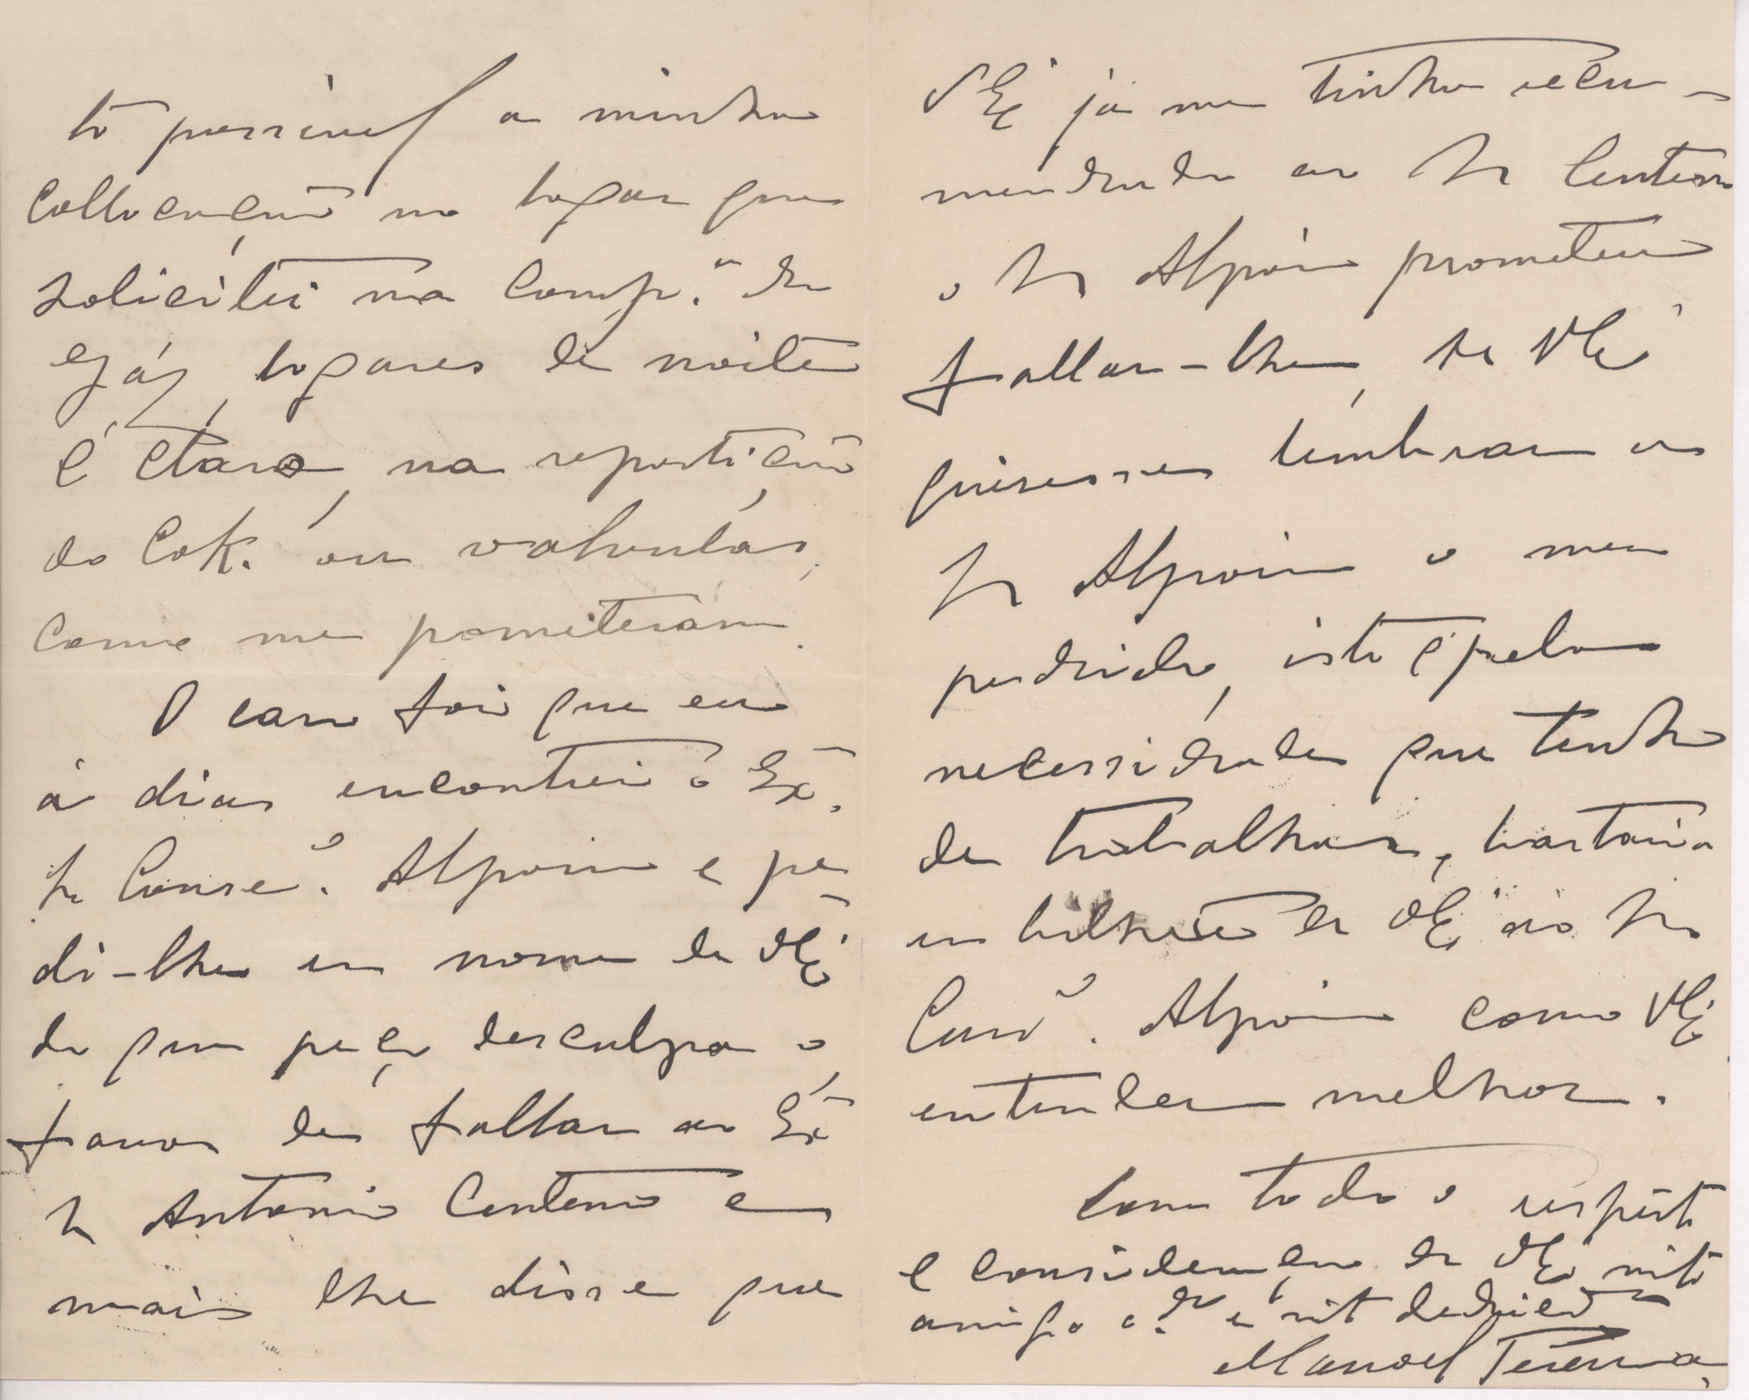 to possivel a minha
collocação no logar que
solicitei na Comp.ª do
gáz, logares de noite
é claro, na repartição
do Cok. ou valvulas,
como me prometeram.
O caso foi que eu
á dias encontrei o Ex.
Sr Conse.º Alpoim e pe
di-lhe em nome de VExª
do que peço desculpa o
favor de fallar ao Ex
Sr Antonio Centeno e
mais lhe disse que
VExª já me tinha recom-
mendado ao Sr Centeno
o Sr Alpoim prometeu
fallar-lhe, se VExª
quizesse lembrar ao
Sr Alpoim o meu
pedido, isto é pela
necessidade que tenho
de trabalhar, bastaria
um bilhete de VExª ao Sr
Consº. Alpoim como VExª
entender melhor.
Com todo o respeito
e consideração de VExª mtº
amigo e mtº dedicado
Manoel Pereira